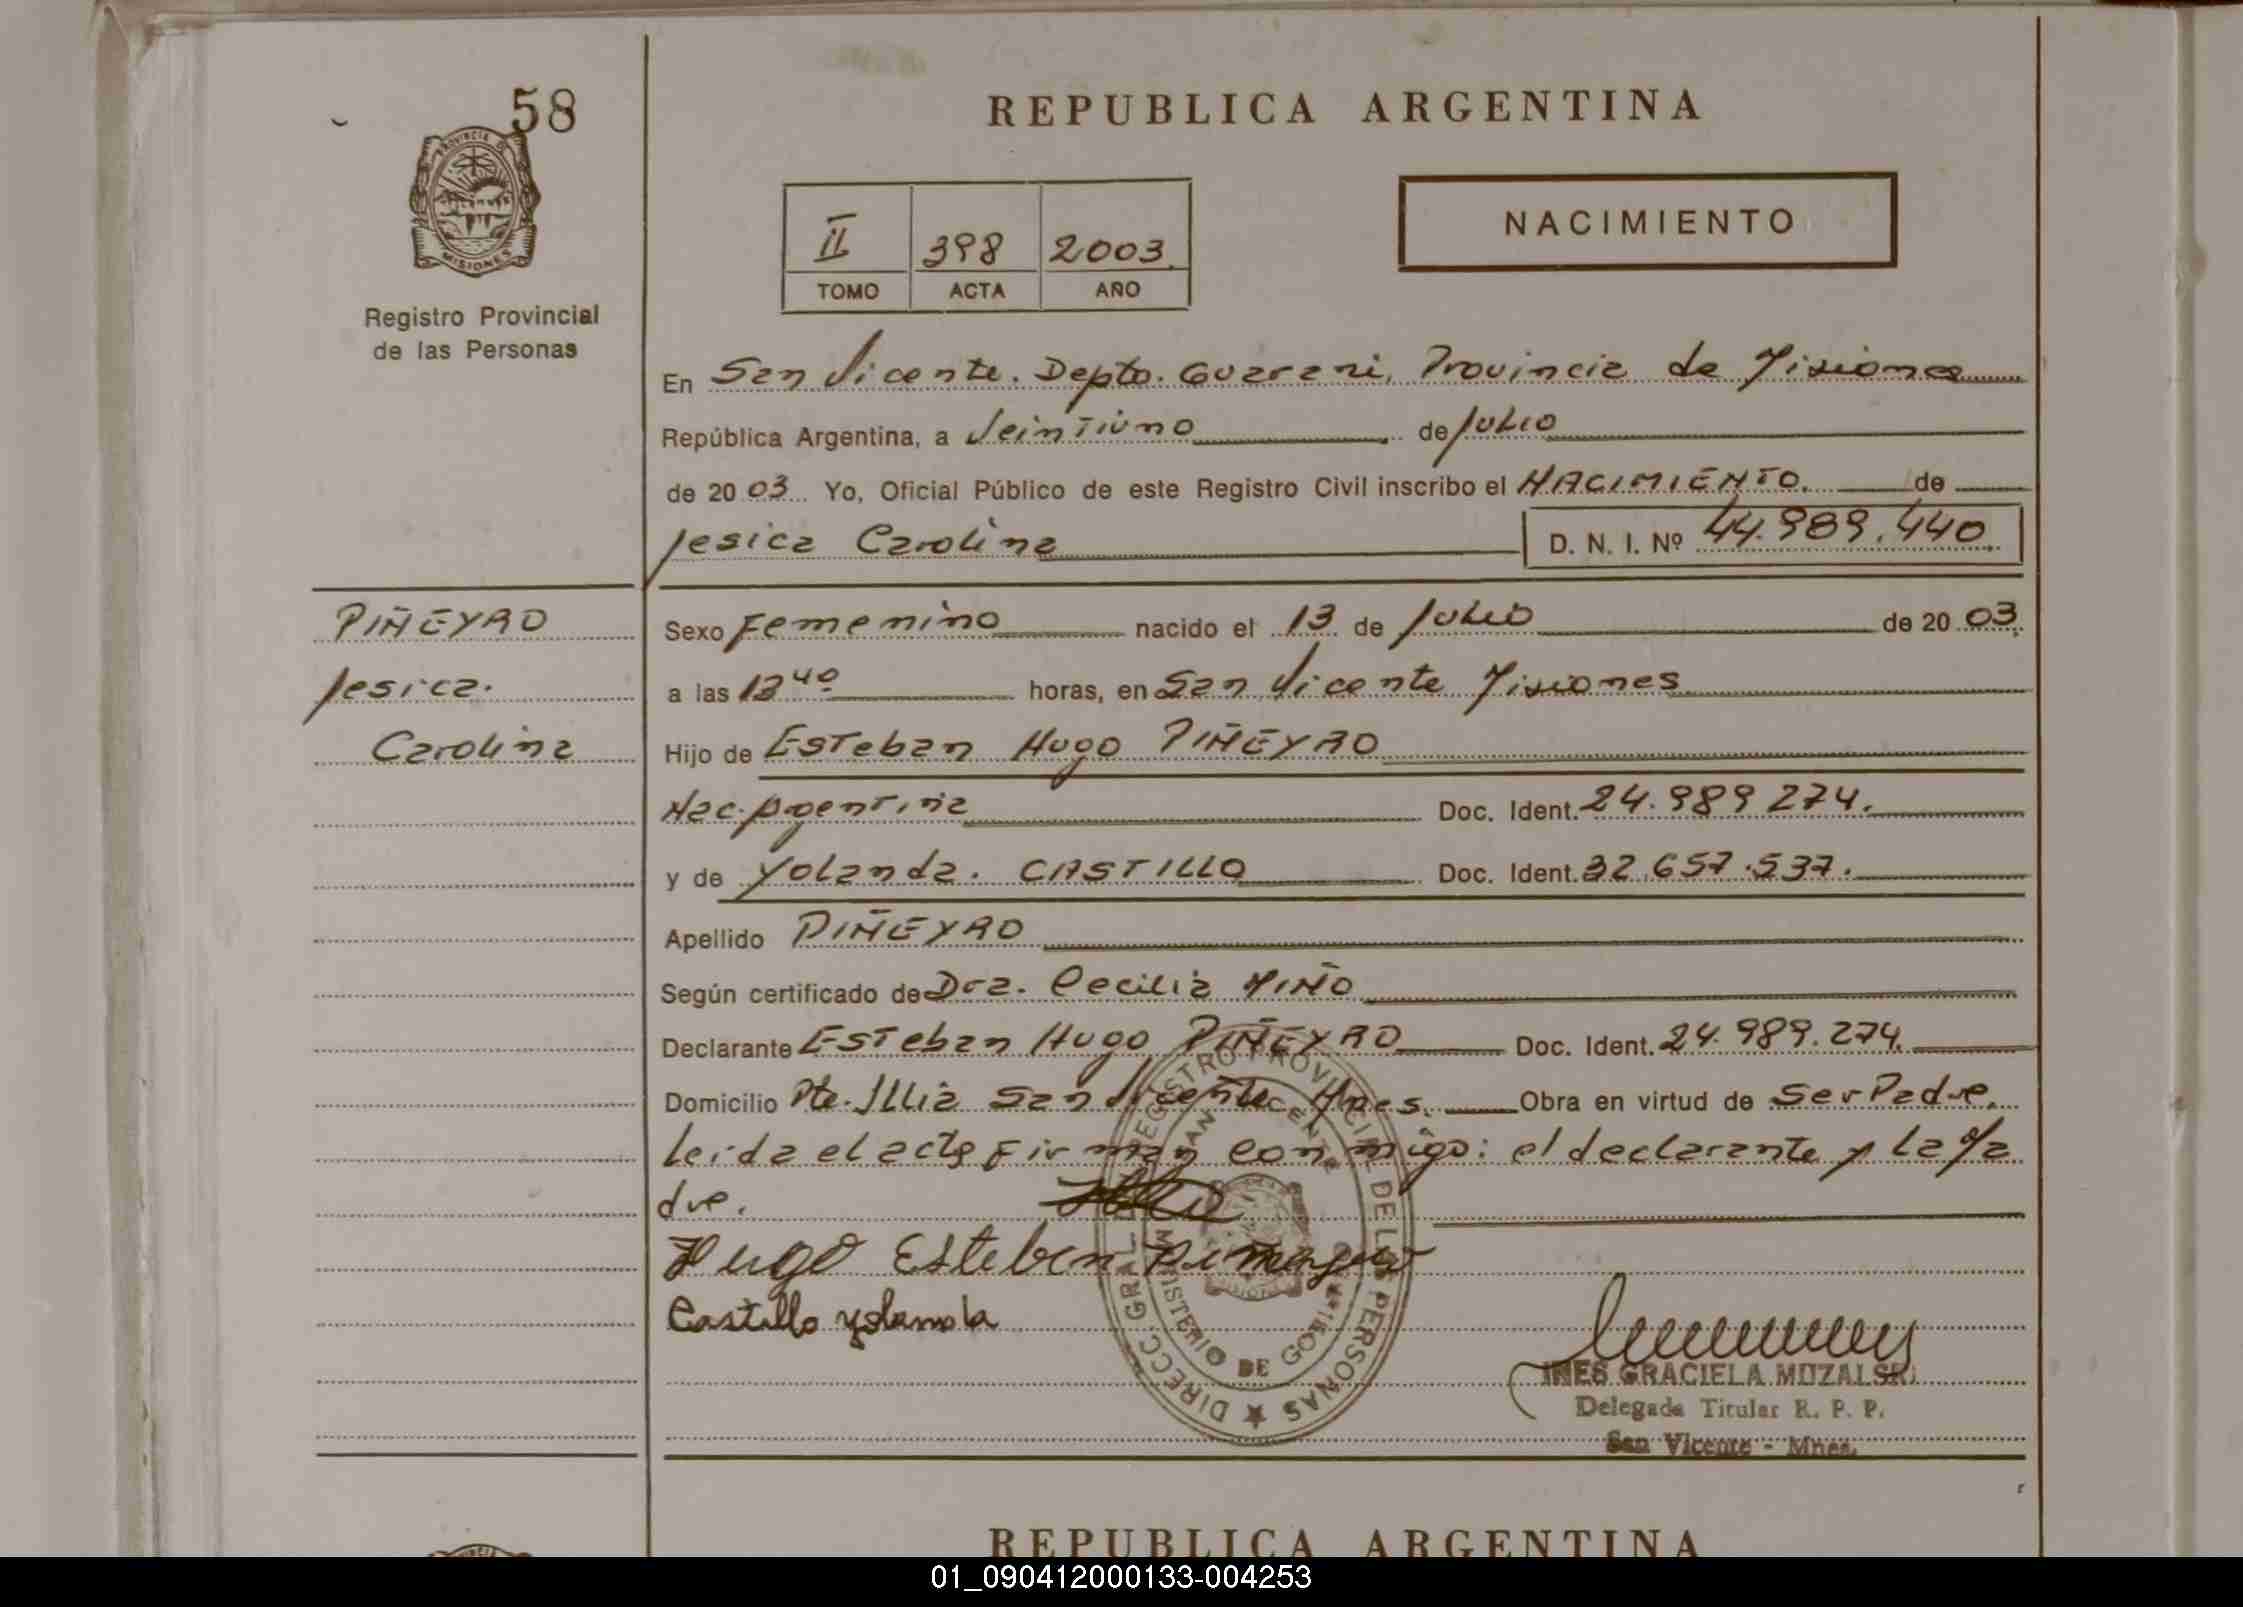 58
REPUBLICA ARGENTINA
PROVINCIA DE
MISIONES
Registro Provincial
de las Personas
II 398 2003
TOMO ACTA AÑO
NACIMIENTO
En San Vicente. Depto. Guarani, Provincia de Misiones
República Argentina, a Veintiuno de Julio
de 2003 Yo, Oficial Público de este Registro Civil inscribo el NACIMIENTO. de
Jesica Carolina D. N. I. Nº 44.989.440
PIÑEYRO
Jesica.
Carolina
Sexo Femenino nacido el 13 de Julio de 2003
a las horas, en San Vicente Misiones
Hijo de Esteban Hugo PIÑEYRO
Nac. Argentina Doc. Ident. 24.989 274.
y de Yolanda. CASTILLO Doc. Ident. 32.657.537.
Apellido PIÑEYRO
Según certificado de Dra. Cecilia MIÑO
Declarante Esteban Hugo PIÑEYRO Doc. Ident. 24.989.274.
Domicilio Pte. Illia San Vicente Mnes. Obra en virtud de Ser Padre.
Leida el acta Firman conmigo: el declarante y la Ma
dre.
Hugo Esteban
Castillo Yolanda
DIRECC. GRAL. DE REGISTRO PROVINCIAL DE LAS PERSONAS
SAN VICENTE
MINISTERIO DE GOBIERNO
INES GRACIELA MUZALSKI
Delegada Titular R. P. P.
San Vicente - Mnes.
REPUBLICA ARGENTINA
01_090412000133-004253